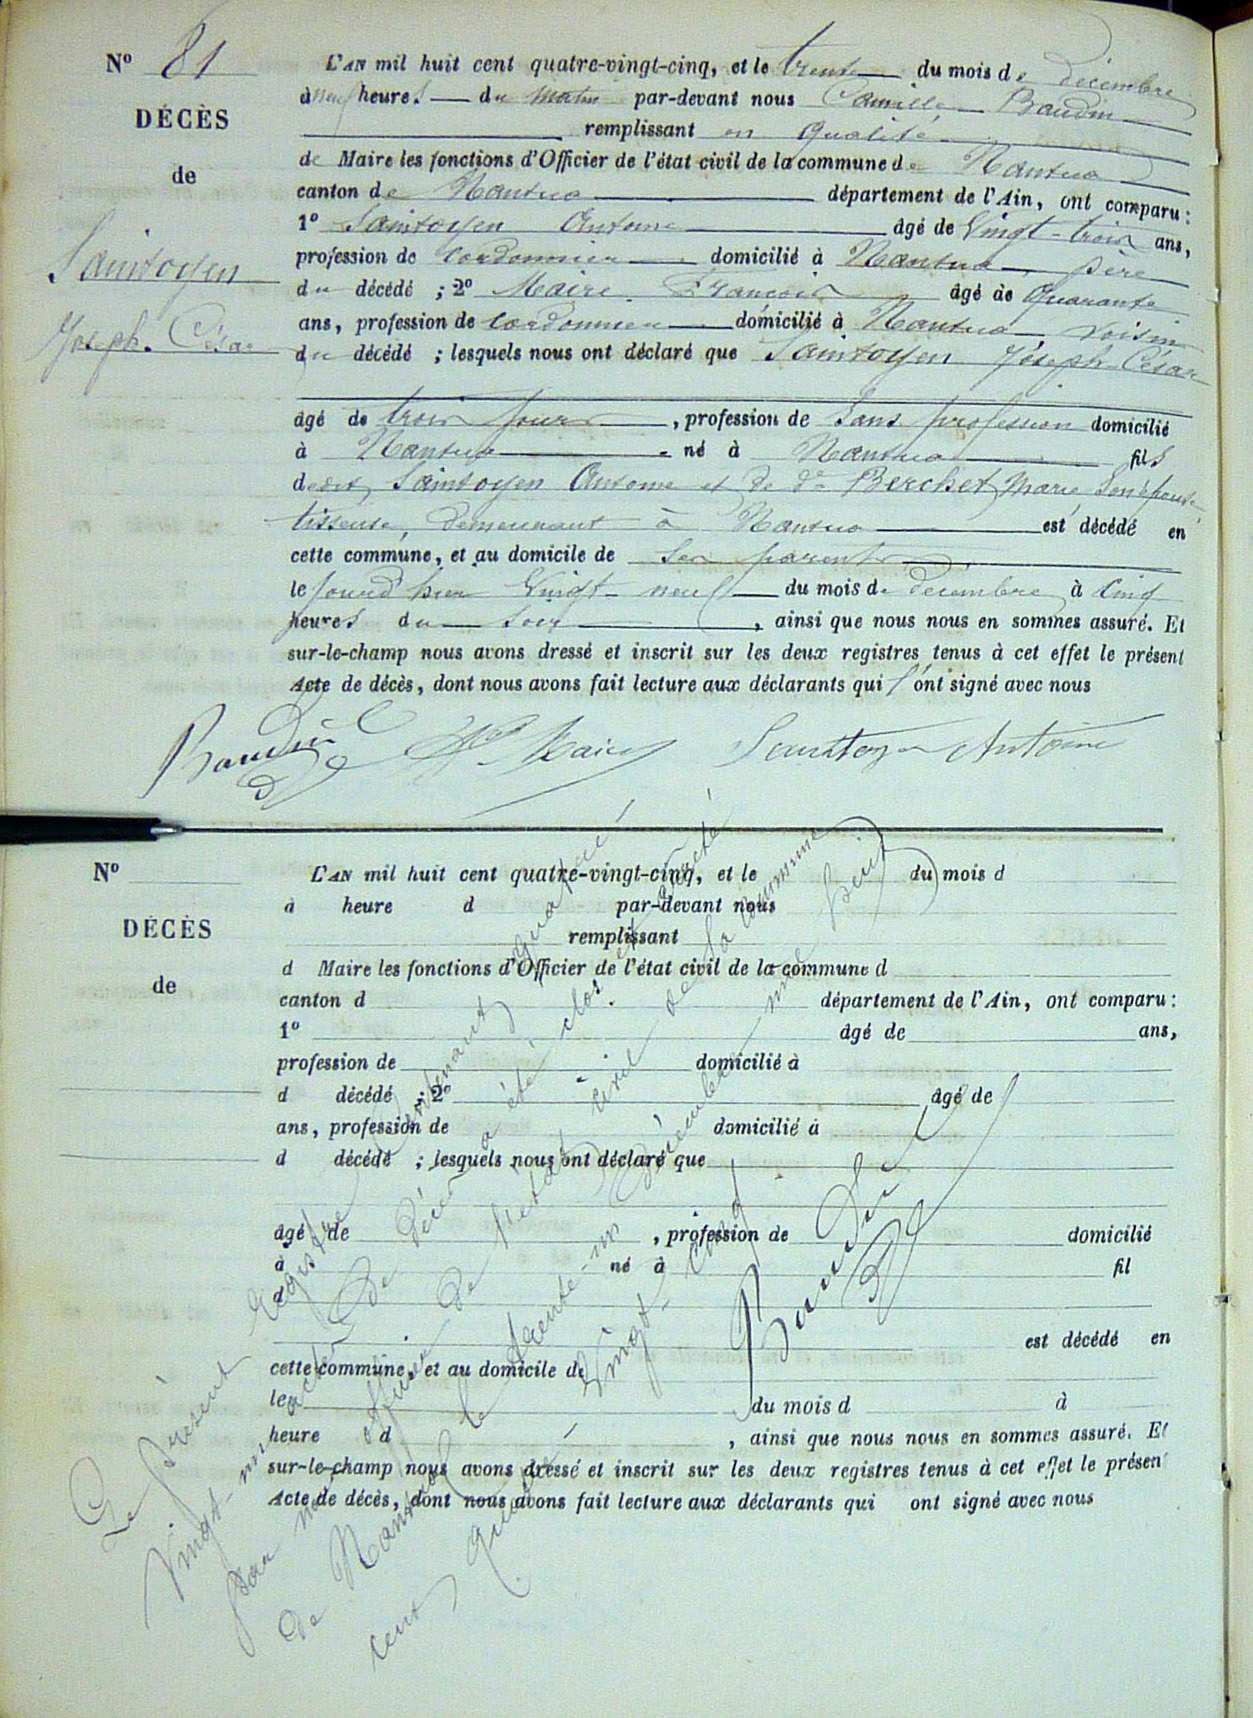 N° 81
DÉCÈS
de
Saintoyen
Joseph César
L'AN mil huit cent quatre-vingt-cinq, et le trente du mois de décembre
à neuf heures du matin par-devant nous Camille Baudin
remplissant en qualité
de Maire les fonctions d'Officier de l'état civil de la commune de Nantua
canton de Nantua département de l'Ain, ont comparu :
1° Saintoyen Antoine âgé de Vingt-trois ans,
profession de cordonnier domicilié à Nantua, père
du décédé ; 2° Maire François âgé de Quarante
ans, profession de cordonnier domicilié à Nantua voisin
du décédé ; lesquels nous ont déclaré que Saintoyen Joseph César
âgé de trois jours, profession de Sans profession domicilié
à Nantua né à Nantua fils
dedit Saintoyen Antoine et de de Berchet Marie son épouse
tisseuse, demeurant à Nantua est décédé en
cette commune, et au domicile de ses parents
le jourd'hier Vingt-neuf du mois de décembre à Cinq
heures du soir, ainsi que nous nous en sommes assuré. Et
sur-le-champ nous avons dressé et inscrit sur les deux registres tenus à cet effet le présent
Acte de décès, dont nous avons fait lecture aux déclarants qui l'ont signé avec nous
Baudin Maire Saintoyen Antoine
N°
DÉCÈS
de
L'AN mil huit cent quatre-vingt-cinq, et le du mois d
à heure d par-devant nous
remplissant
d Maire les fonctions d'Officier de l'état civil de la commune d
canton d département de l'Ain, ont comparu :
1° âgé de ans,
profession de domicilié à
d décédé ; 2° âgé de
ans, profession de domicilié à
d décédé ; lesquels nous ont déclaré que
âgé de , profession de domicilié
à né à fil
d
est décédé en
cette commune, et au domicile de
le du mois d à
heure d , ainsi que nous nous en sommes assuré. Et
sur-le-champ nous avons dressé et inscrit sur les deux registres tenus à cet effet le présen
Acte de décès, dont nous avons fait lecture aux déclarants qui ont signé avec nous
Le présent registre contenant quatre
Vingt-un actes de décès a été clos et arrêté
par nous officier de l'état civil de la commune
de Nantua le trente-un décembre mil huit
cent quatre Vingt-cinq
Baudin